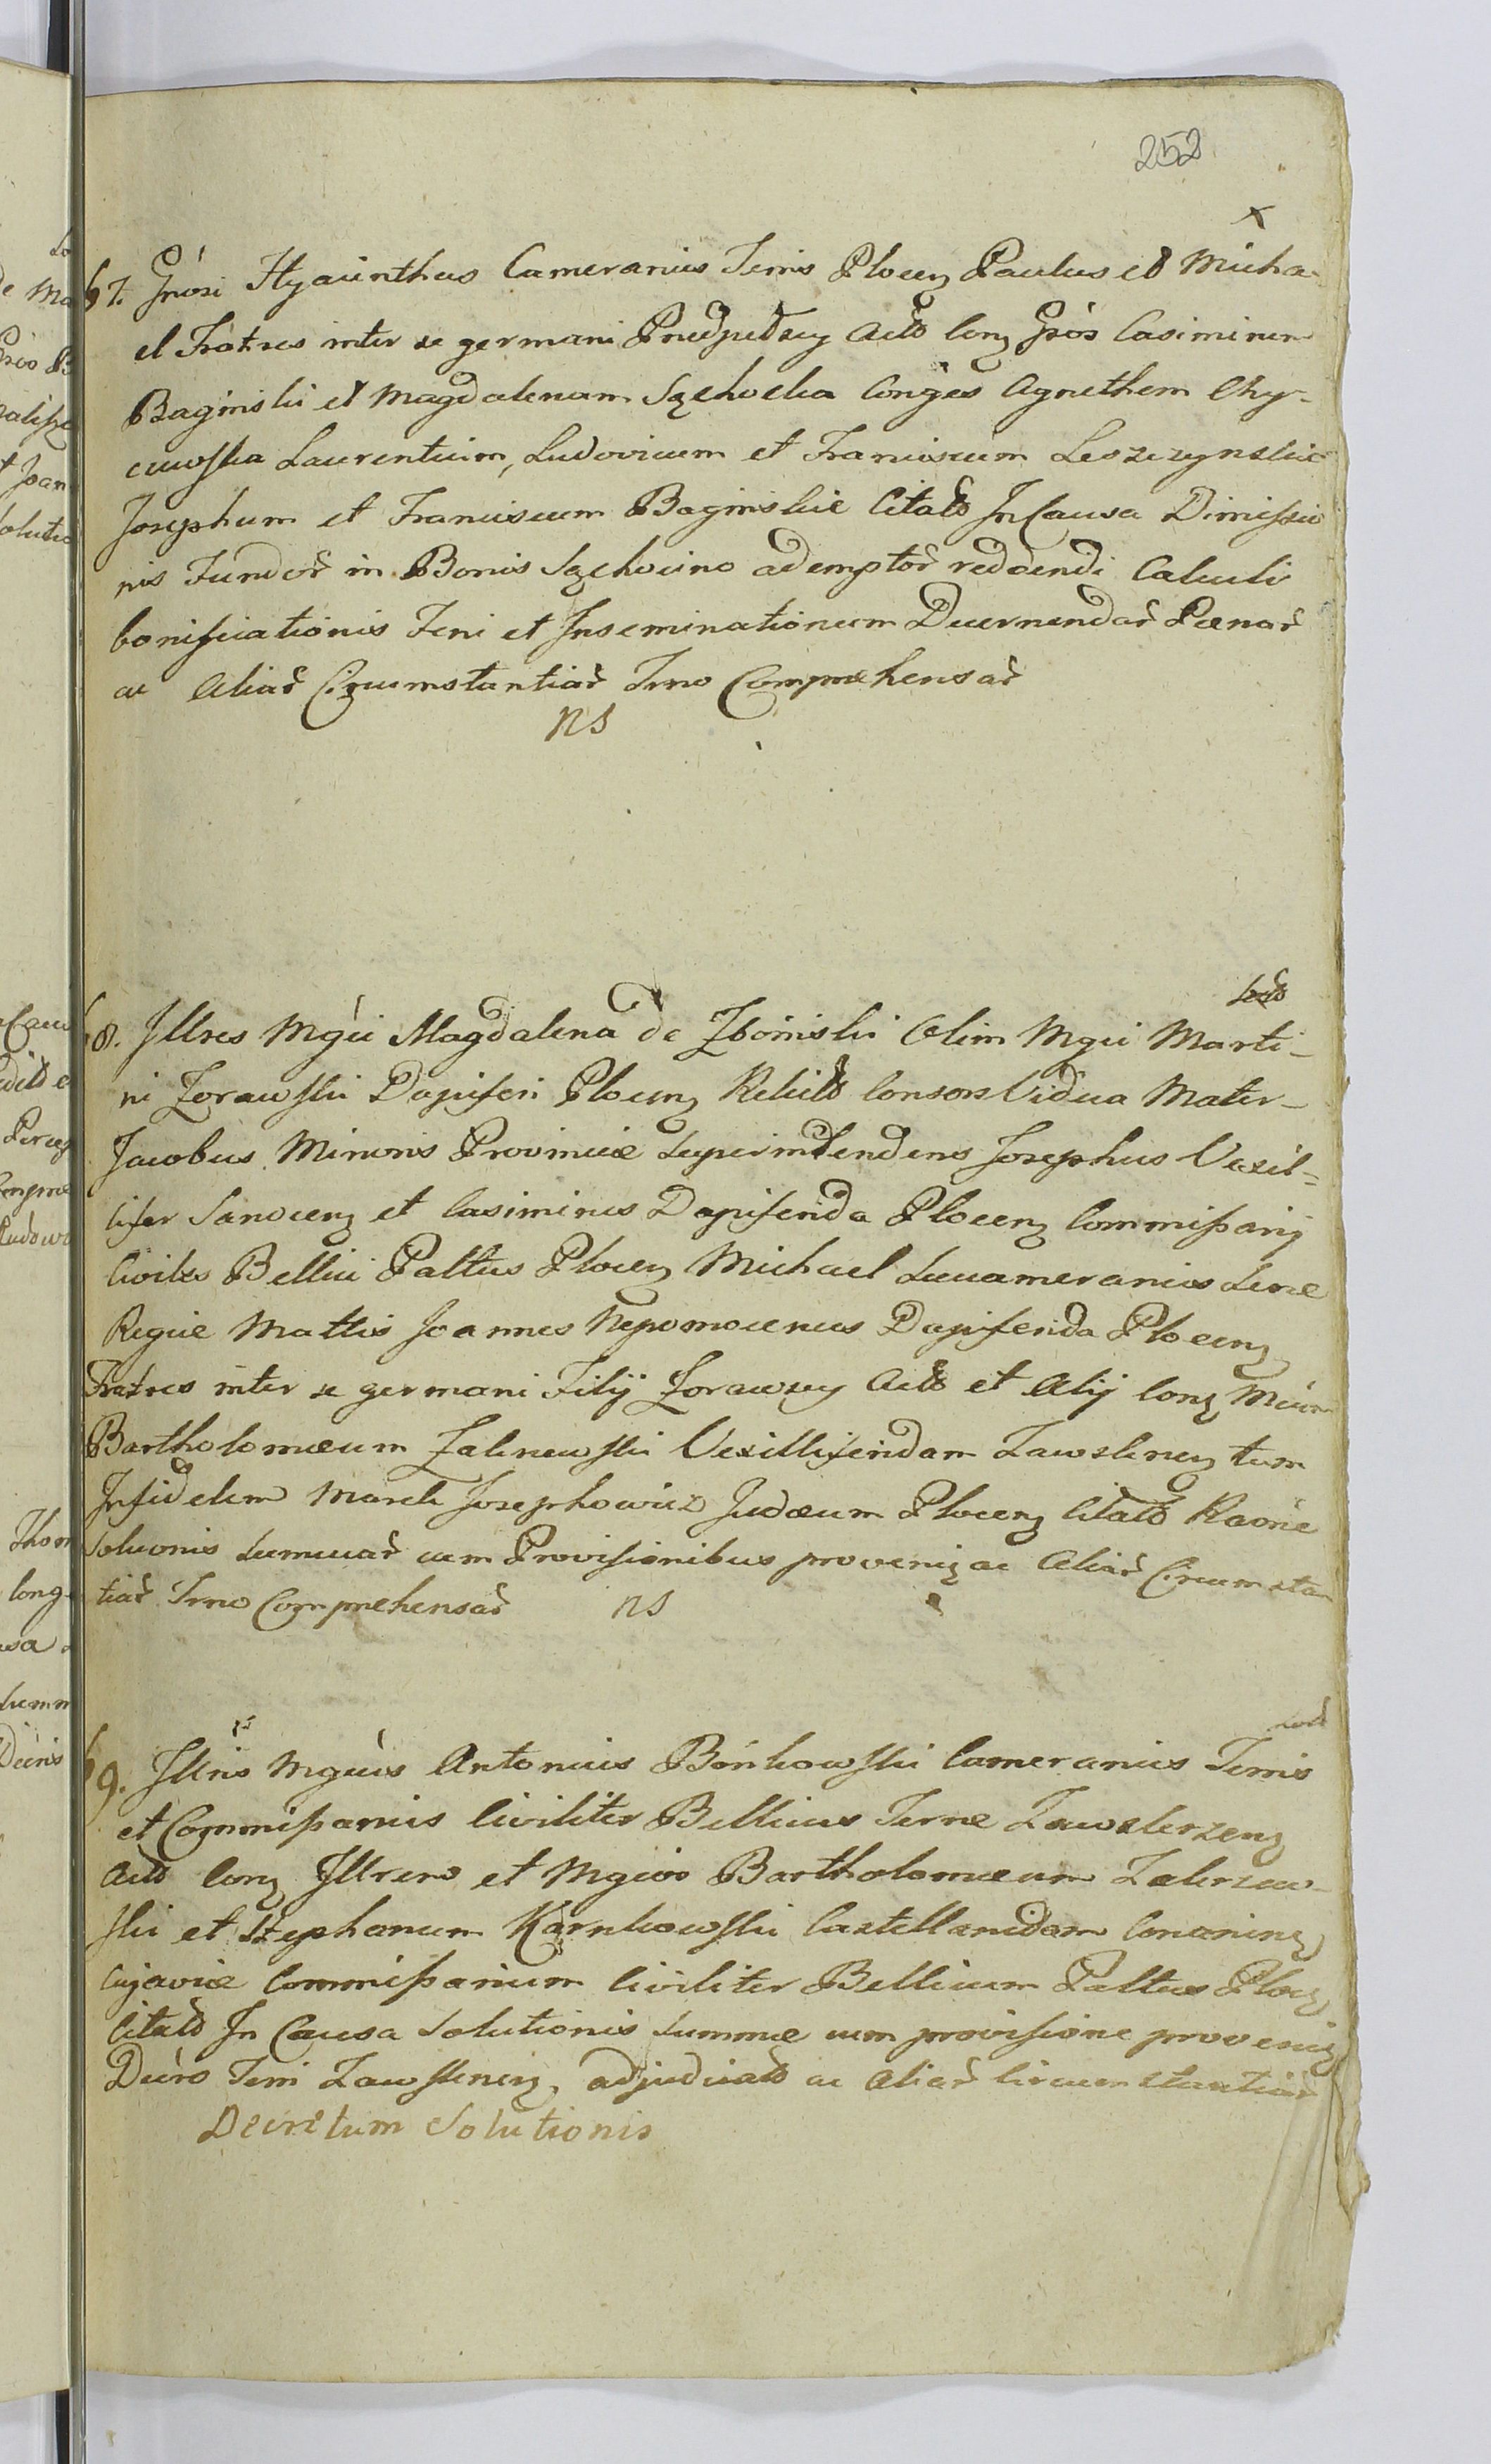 252
x
67. Gnosi Hyacinthus Camerarius Terris Plocen Paulus et Micha-
el Fratres inter se germani Actô Con Gños Casimirum
Baginski et Magdalenam Sęchocka Conges Agnethem Chy-
cewska Laurentium, Ludovicum et Franciscum Leszczynskie
Josephum et Franciscum Baginskie Citatô In Causa Dimissio
nis Fundor in Bonis Sęchocino ademptor reddendi Calculi
bonificationis Feni et Inseminationum Decernendar Pœnar
ac Aliar Circumstantiar Trno Compræhensar
ns
68. Illres Mgci Magdalena de Zboinski Olim Mgci Marti-
ni Zorawski Dapiferi Plocen Relictô Consors Vidua Mater-
Jacobus Minoris Provinciæ Superintendens Josephus Vexil-
lifer Sanocen et Casimirus Dapiferida Plocen Commissarij
Civiles Bellici Pattus Plocen Michael Succamerarius Sacræ
Regiæ Mattis Joannes Nepomocenus Dapiferida Plocen
Fratres inter se germani Filij Zorawscy Actô et Alij Con Mcum
Bartholomæum Zalewski Vexilliferidam Zawskrnen tum
Infidelem Marek Josephowicz Judæum Plocen Citatô Raõne
Soluonis Summar cum Provisionibus provenien ac Aliar Circumstan
tiar Trno Compræhensar ns
69. Illris Mgcus Antonius Bońkowski Camerarius Terris
et Commissarius Civiliter Bellicus Terræ Zawskrzen
Actô Con Illrem et Mgcos Bartholomæum Zakrzew-
ski et Stephanum Karnkowski Castellanidam Conarien
Cujaviæ Commissarium Civiliter Bellicum Pattus Plocen
Citatô In Causa Solutionis Summæ cum provisione provenien
Decro Terri Zawskrnen, adjudicatô ac Aliar Circumstantiar
Decretum Solutionis